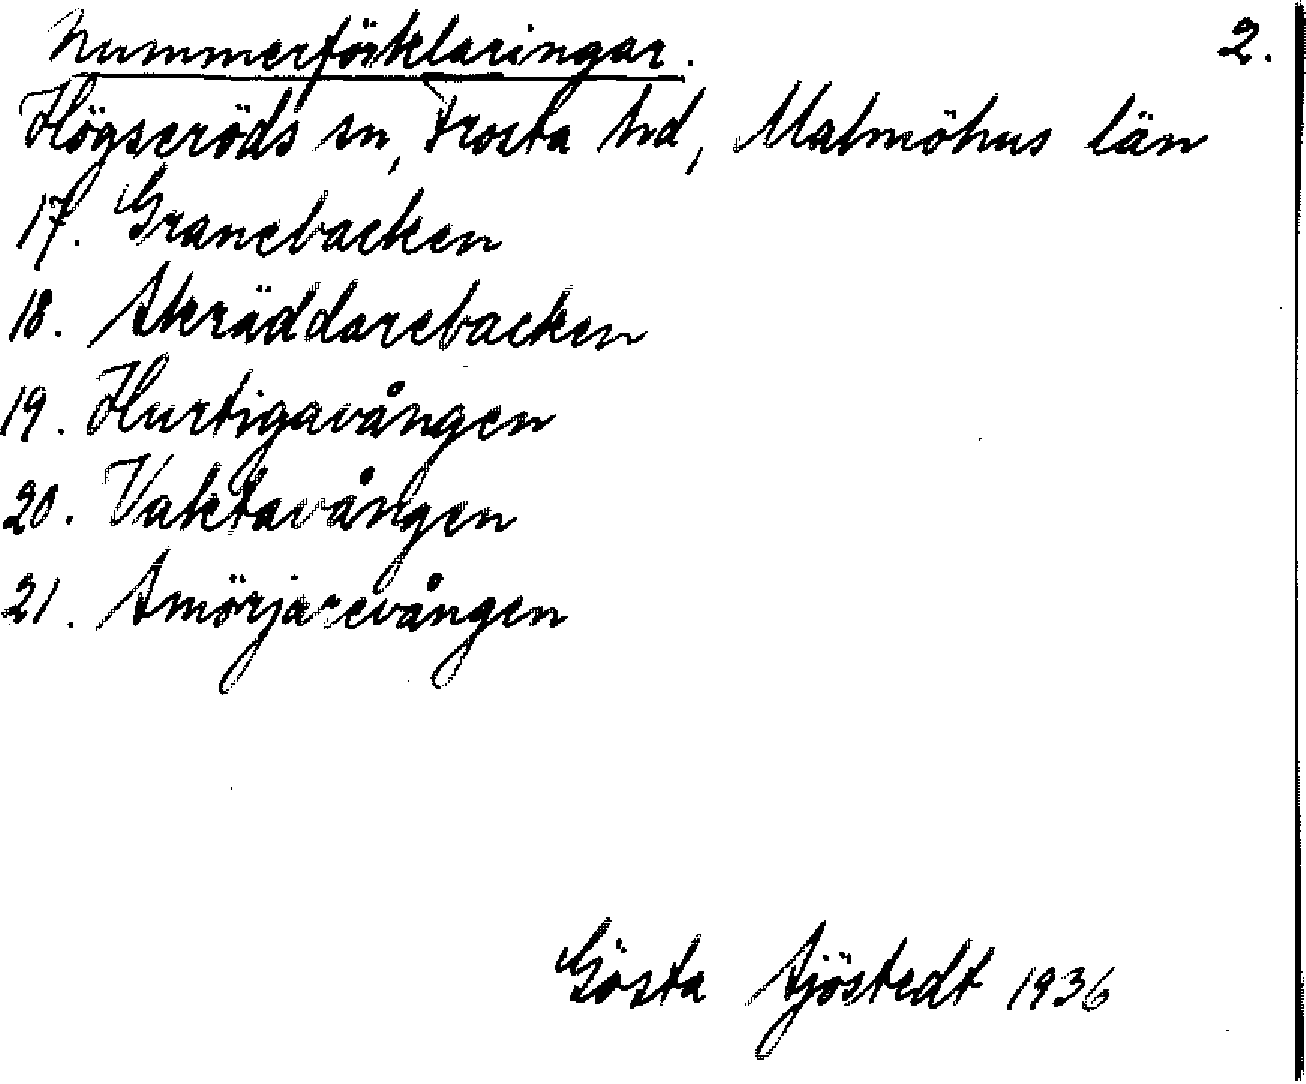 Nummerförklaringar. 2.
Högseröds sn, Frosta hd, Malmöhus län
17. Granebacken
18. Skräddarebacken
19. Hurtigavången
20. Vaktavången
21. Smörjarevången
Gösta Sjöstedt 1936